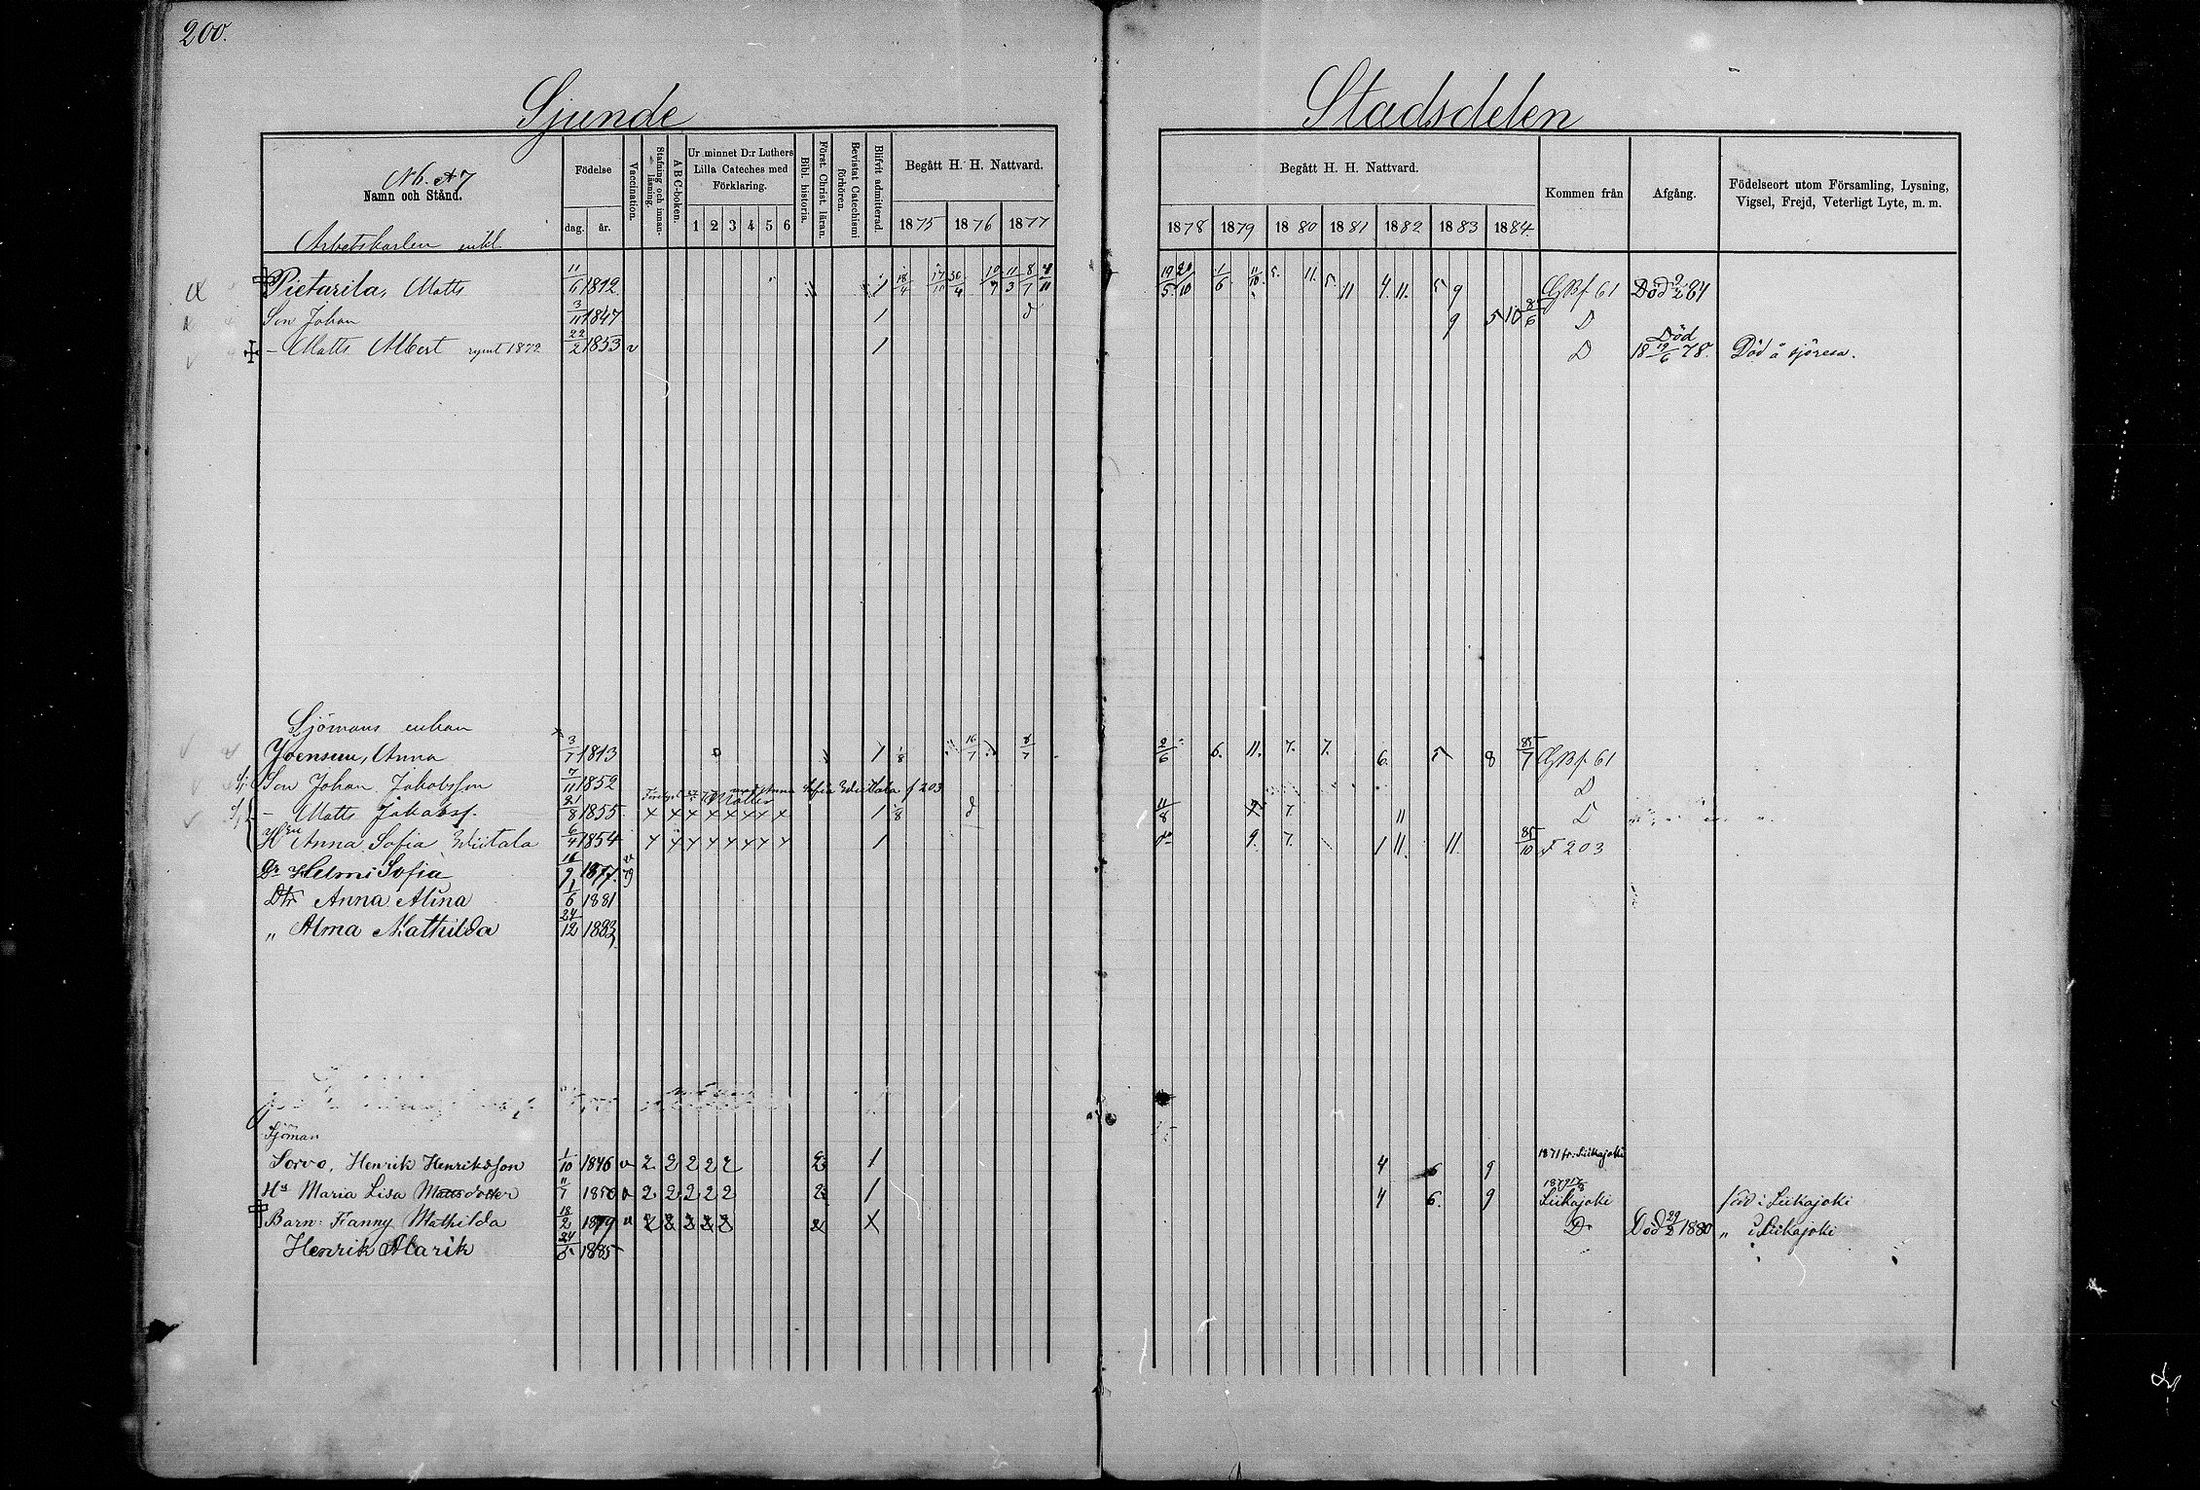 200.
Sjunde Stadsdelen
No. 47
Namn och Stånd.
Födelse
dag. år.
Vaccination.
Stafning och innan-läsning.
A B C-boken.
Ur minnet D:r Luthers Lilla Cateches med Förklaring.
1 2 3 4 5 6
Bibl. historia.
Först. Christ. läran.
Bevistat Catechismi förhören.
Blifvit admitterad.
Begått H. H. Nattvard.
1875 1876 1877
Begått H. H. Nattvard.
1878 1879 1880 1881 1882 1883 1884
Kommen från
Afgång.
Födelseort utom Församling, Lysning, Vigsel, Frejd, Veterligt Lyte, m. m.
Arbetskarlen enkl.
Pietarila, Matts 11/6 1812 1 18/4 17/10 30/4 10/9 11/3 8/7 19/5 20/10 1/6 11/10 5. 11. 5 11 4 11. 5 9 GBf 61 Död 9/2 84
Son Johan 3/11 1847 1 9 5 10 85/6 D
– Matts Albert rymt 1872 22/2 1853 v 1 D Död 18 19/6 78. Död å sjöresa.
Sjömans enkan
Joensuu, Anna 3/7 1813 1 1/8 16/7 8/7 2/6 6. 11. 7. 7. 6. 5 8 85/7 GBf 61
Son Johan Jakobsson 7/11 1852 Anna Sofia Wiitala f 203 D
– Matts Jakobss. 21/8 1855 x x x x x x x x 1 1/8 d 11/8 7. 11 D
Hu Anna Sofia Wiitala 6/4 1854 x x x x x x x x 1 do 9. 7. 1 11. 11. 85/10 F 203
Dr Helmi Sofia 16/9 1877. v 79
Dtr Anna Alina 1/6 1881
„ Alma Mathilda 24/12 1883
Sjöman
Sorvo, Henrik Henriksson 1/10 1846 v 2 2 2 2 2 2 1 4 6 9 1871 fr. Siikajoki
Hs Maria Lisa Mattsdotter 11/7 1850 v 2 2 2 2 2 2 1 4 6. 9 1879 Siikajoki född i Siikajoki
Barn: Fanny Mathilda 18/2 1879 v 2 2 2 2 2 2 X Do Död 29/2 1880 „ i Siikajoki
Henrik Alarik 24/5 1885